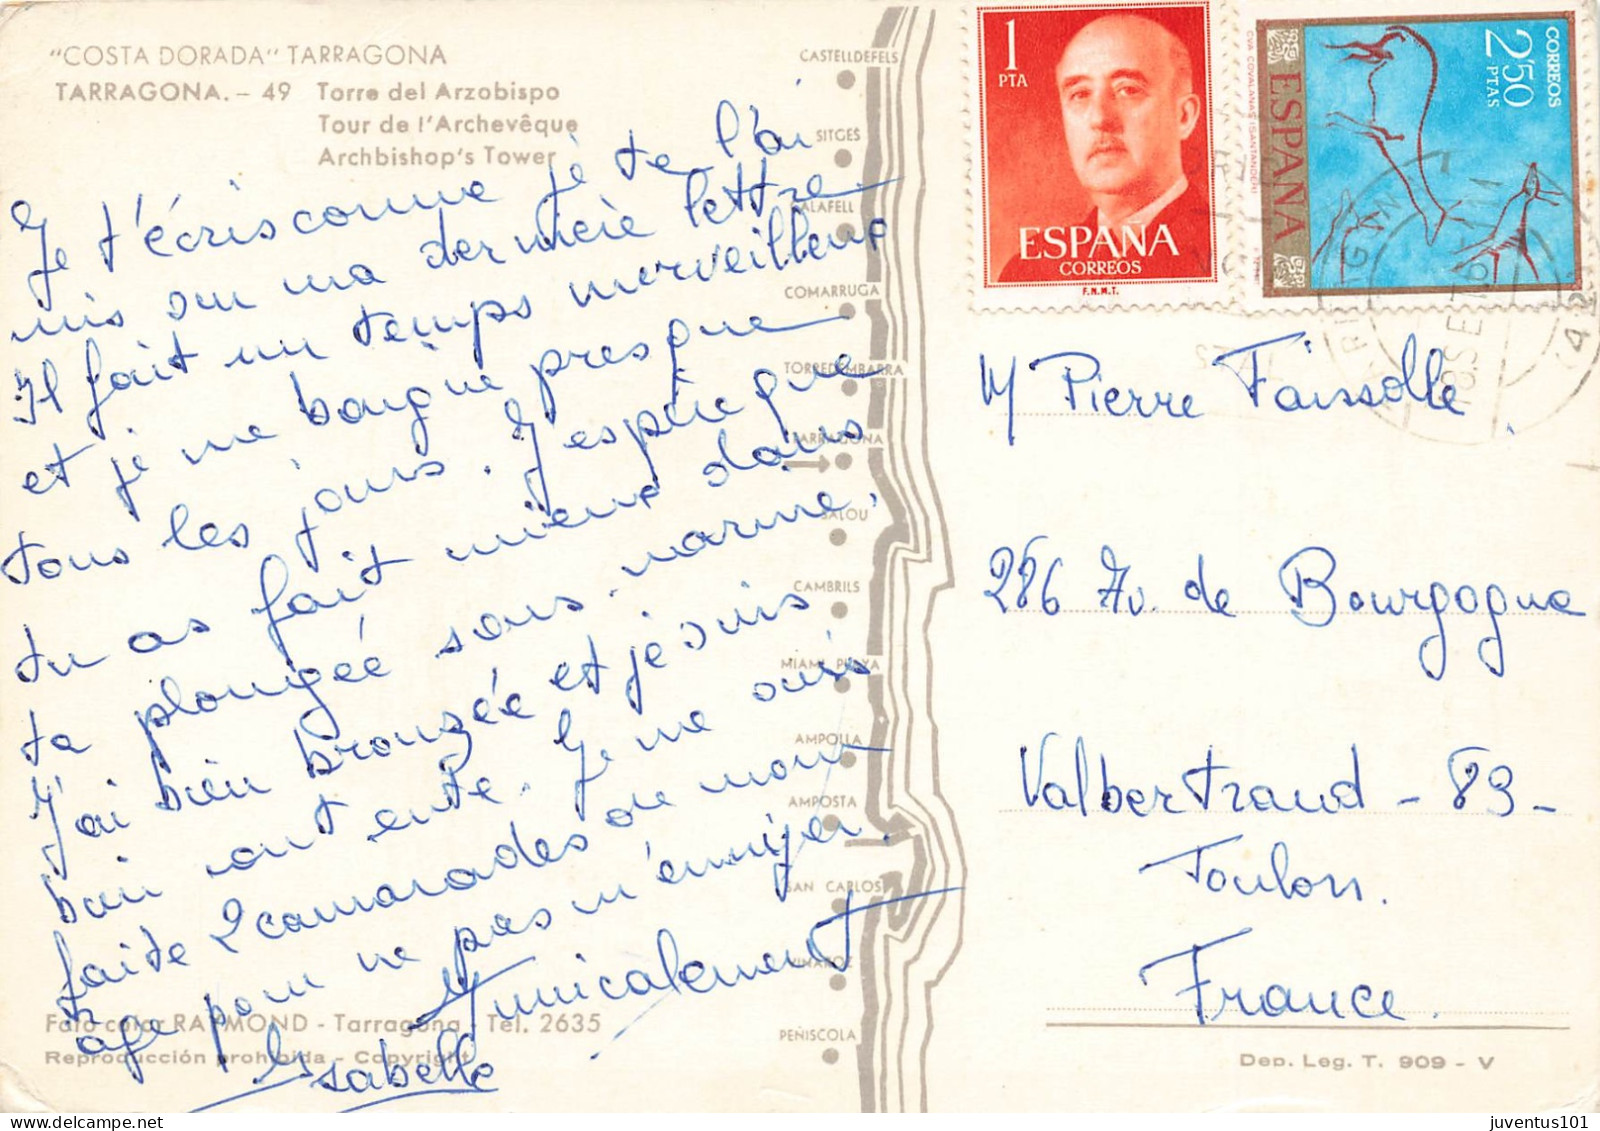 "COSTA DORADA" TARRAGONA
TARRAGONA. - 49 Torre del Arzobispo
Tour de l'Archevêque
Archbishop's Tower
Je t'écris comme je te l'ai
mis sur ma dernière lettre
Il fait un temps merveilleux
et je me baigne presque
tous les jours. J'espère que
tu as fait mieux dans
ta plongée sous-marine.
J'ai bien bronzée et je suis
bien contente. Je me suis
faite 2 camarades de mon
âge pour ne pas m'ennuyer.
Amicalement
Isabelle
Foto color RAYMOND - Tarragona. Tel. 2635
Reproducción prohibida - Copyright
CASTELLDEFELS
SITGES
CALAFELL
COMARRUGA
TORREDEMBARRA
TARRAGONA
SALOU
CAMBRILS
MIAMI PLAYA
AMPOLLA
AMPOSTA
SAN CARLOS
VINAROZ
PEÑISCOLA
1
PTA
ESPAÑA
CORREOS
F.N.M.T.
CORREOS
2'50
PTAS
ESPAÑA
CVA COVALANAS (SANTANDER)
M Pierre Faissolle
286 Av. de Bourgogne
Valbertrand - 83 -
Toulon.
France.
Dep. Leg. T. 909 - V
juventus101